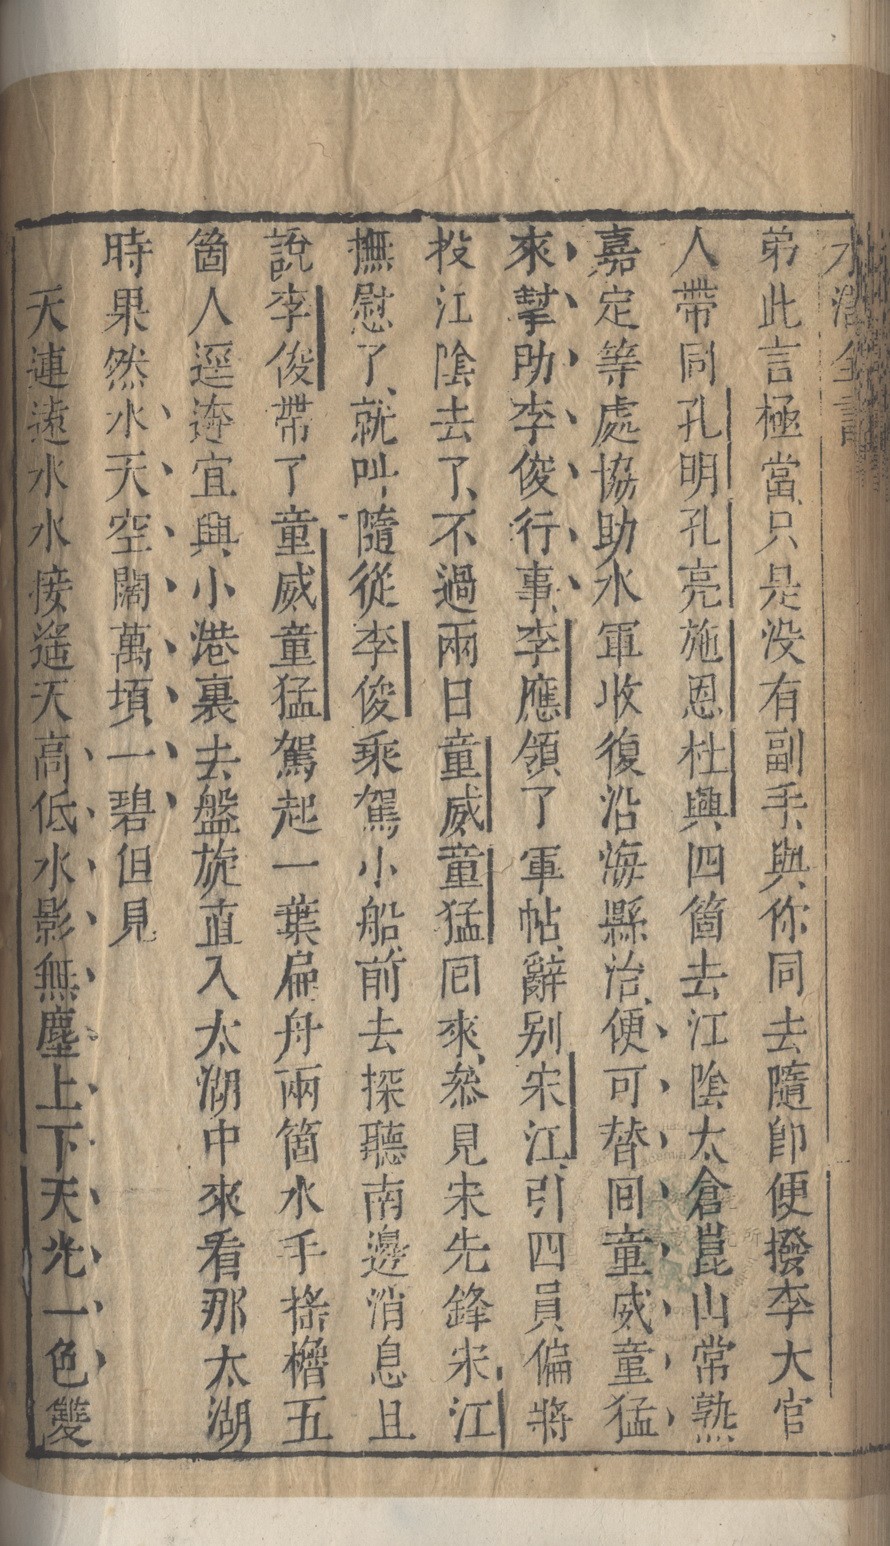 水滸全書
弟此言極當只是没有副手與你同去隨即便撥李大官
人帶同孔明孔亮施恩杜興四箇去江陰太倉崑山常熟
嘉定等處協助水軍收復沿海縣治便可替回童威童猛
來幫助李俊行事李應領了軍帖辭别宋江引四員偏將
投江陰去了不過兩日童威童猛囘來叅見宋先鋒宋江
撫慰了就呌隨從李俊乘駕小船前去探聽南邊消息且
說李俊帶了童威童猛駕起一葉扁舟兩箇水手搖櫓五
箇人逕迯宜興小港裏去盤旋直入太湖中來看那太湖
時果然水天空闊萬頃一碧但見
天連遠水水接遙天高低水影無塵上下天光一色雙